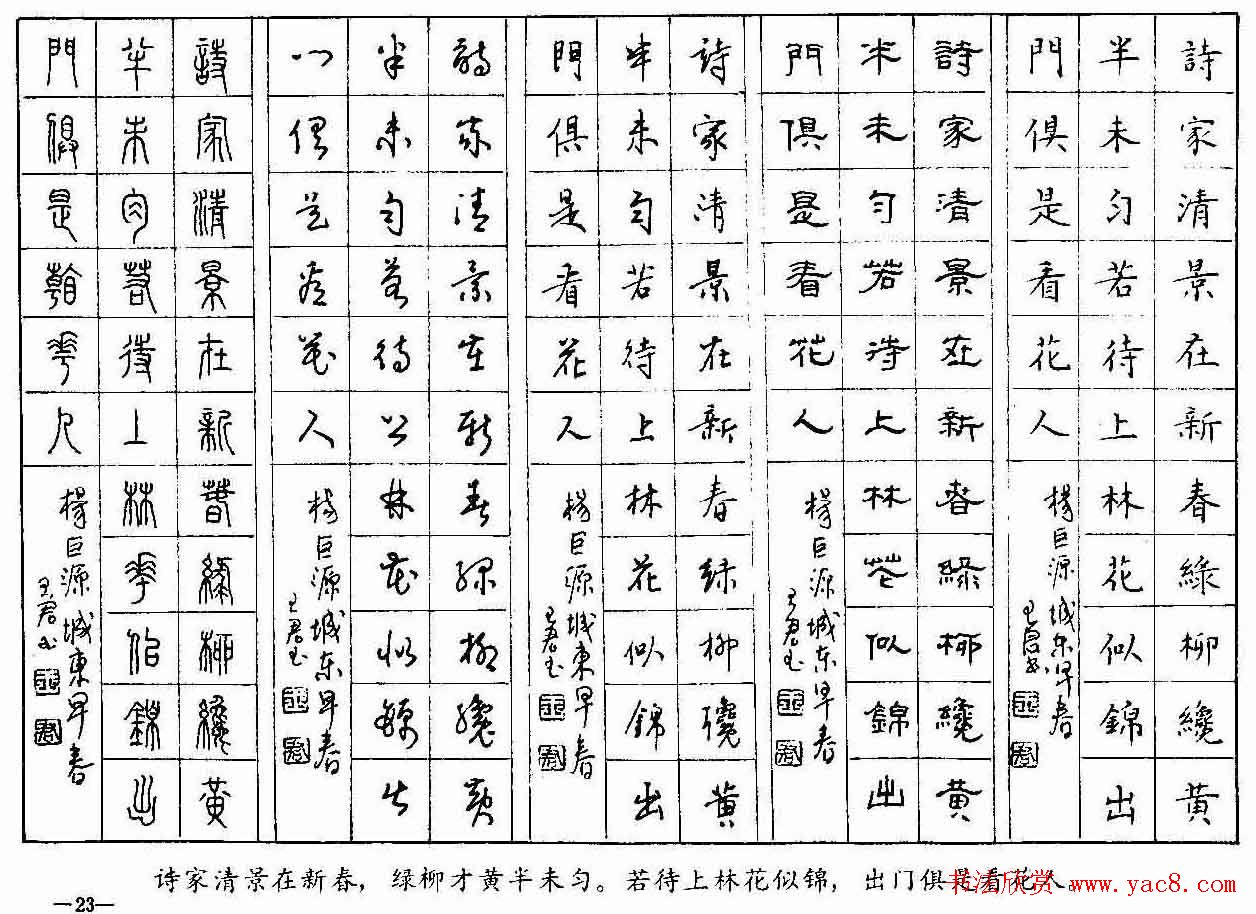 詩家清景在新春綠柳纔黃
半未匀若待上林花似錦出
門俱是看花人
楊巨源城东早春
王君书
詩家清景在新春綠柳纔黃
半未匀若待上林花似錦出
門俱是看花人
楊巨源城东早春
王君书
詩家清景在新春綠柳纔黃
半未匀若待上林花似錦出
門俱是看花人
楊巨源城東早春
王君书
詩家清景在新春綠柳纔黃
半未匀若待上林花似錦出
门俱是看花人
楊巨源城东早春
王君书
詩家清景在新春綠柳纔黃
半未匀若待上林華似錦出
門俱是看華人
楊巨源城東早春
王君书
诗家清景在新春，绿柳才黄半未匀。若待上林花似锦，出门俱是看花人。
书法欣赏 www.yac8.com
—23—